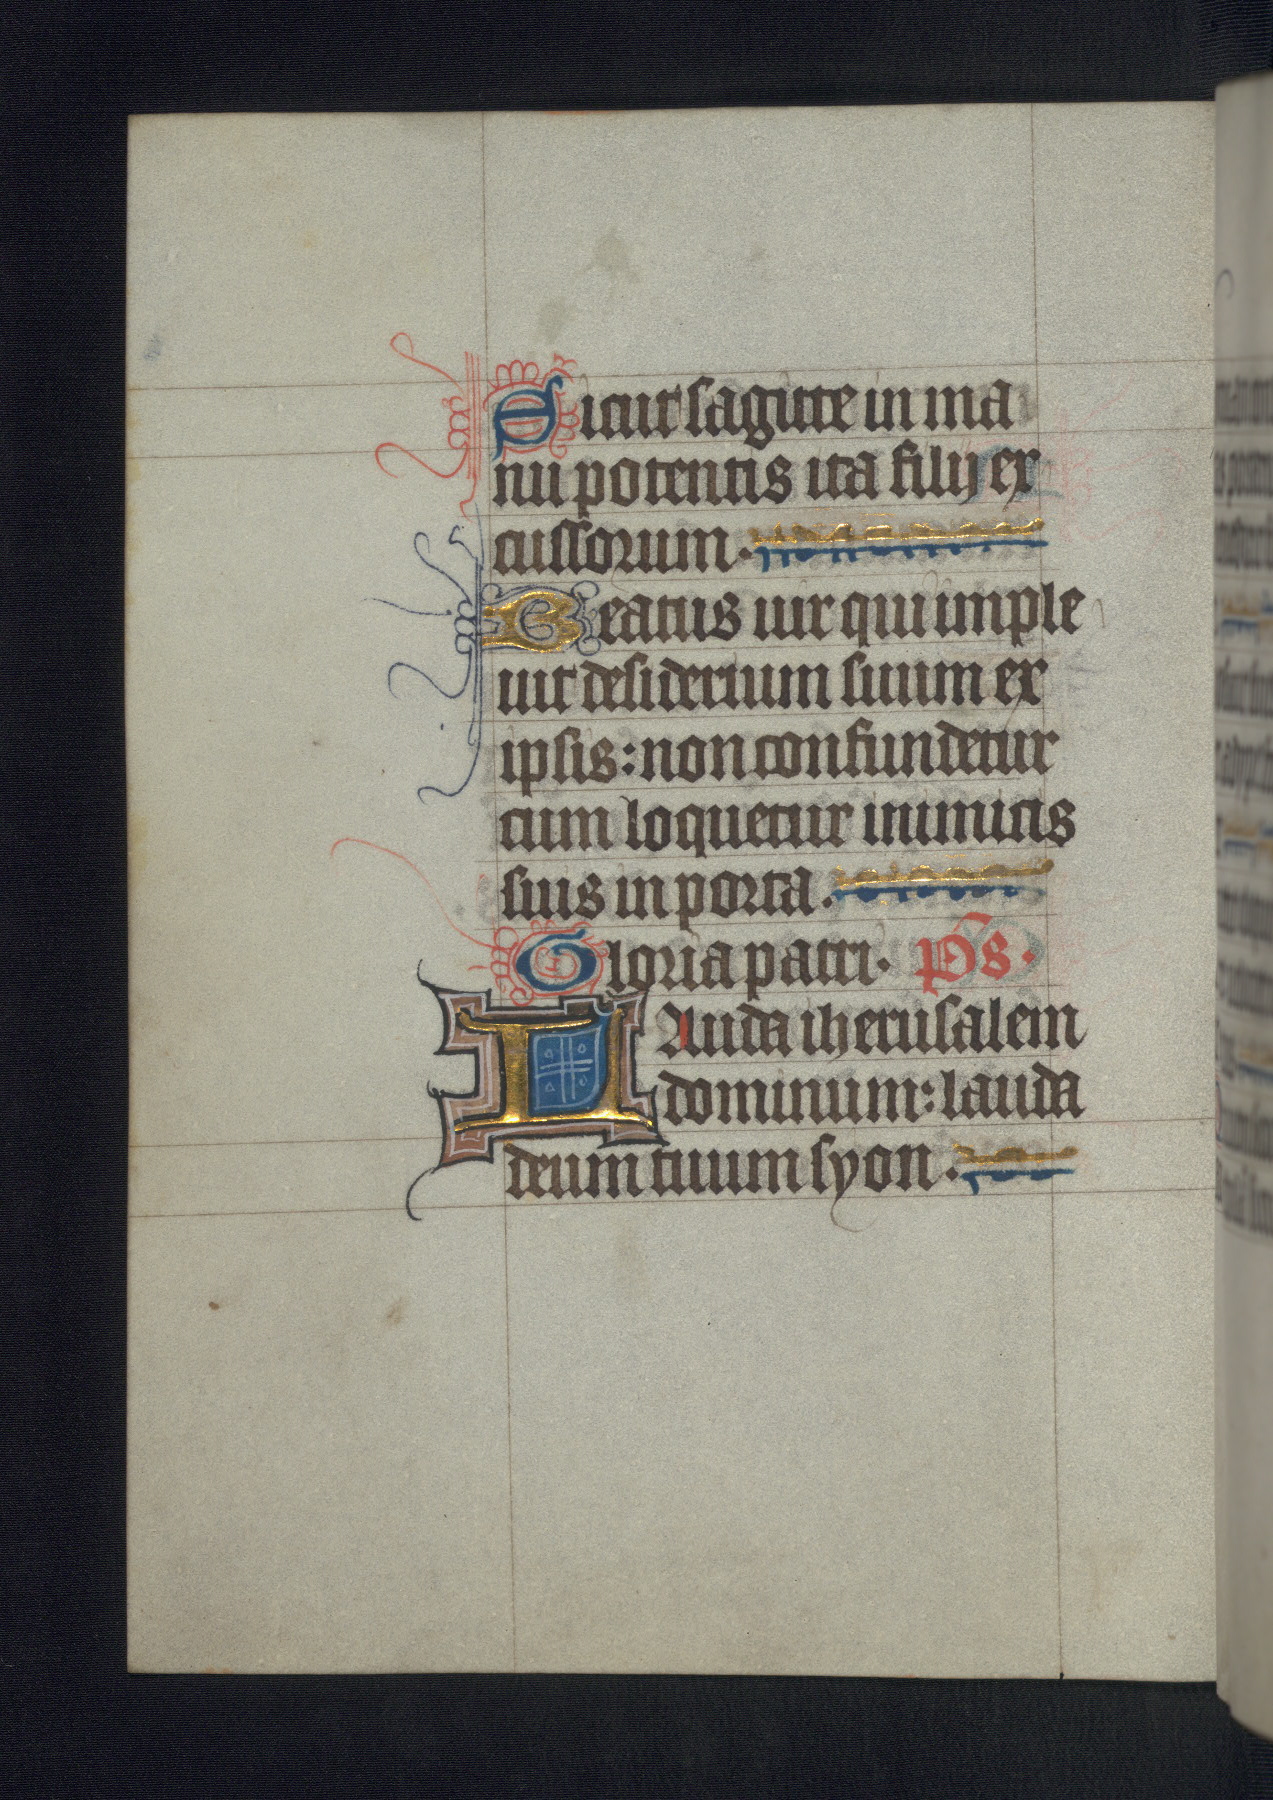 Sicut sagitte in ma
nu potentis ita filij ex
cussorum.
Beatus uir qui imple
uit desiderium suum ex
ipsis: non confundetur
cum loquetur inimicis
suis in porta.
Gloria patri. ps.
Lauda iherusalem
dominum: lauda
deum tuum syon.